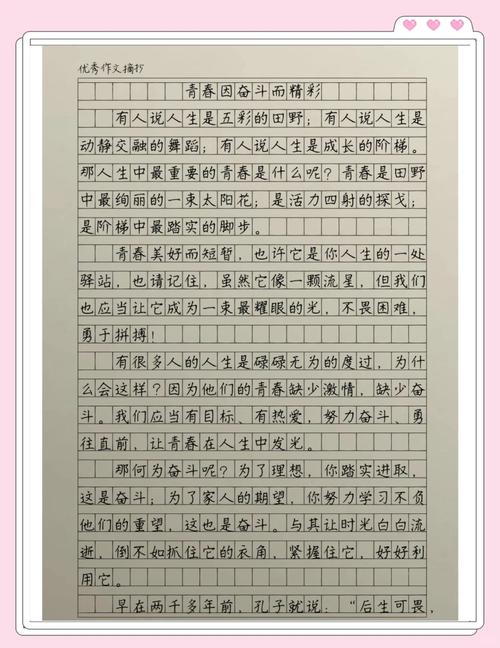 优秀作文摘抄
青春因奋斗而精彩
有人说人生是五彩的田野；有人说人生是
动静交融的舞蹈；有人说人生是成长的阶梯。
那人生中最重要的青春是什么呢？青春是田野
中最绚丽的一束太阳花；是活力四射的探戈；
是阶梯中最踏实的脚步。
青春美好而短暂，也许它是你人生的一处
驿站，也请记住，虽然它像一颗流星，但我们
也应当让它成为一束最耀眼的光，不畏困难，
勇于拼搏！
有很多人的人生是碌碌无为的度过，为什
么会这样？因为他们的青春缺少激情，缺少奋
斗。我们应当有目标、有热爱，努力奋斗、勇
往直前，让青春在人生中发光。
那何为奋斗呢？为了理想，你踏实进取，
这是奋斗；为了家人的期望，你努力学习不负
他们的重望，这也是奋斗。与其让时光白白流
逝，倒不如抓住它的衣角，紧握住它，好好利
用它。
早在两千多年前，孔子就说：“后生可畏，